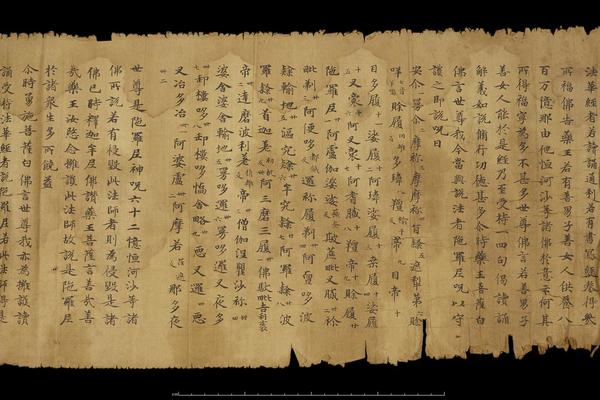 法華經者若讀誦通利若書寫經卷得幾
所福佛告藥王若有善男子善女人供養八
百万億那由他恒河沙等諸佛於意云何其
所得福寧為多不甚多世尊佛言若善男子
善女人能於是經乃至受持一四句偈讀誦
解義如說脩行功德甚多尒時藥王菩薩白
佛言世尊我今當與說法者陁羅尼呪以守
護之即說呪曰
安尒一曼尒二摩祢三摩摩祢四旨隸五遮犁第六賖
咩七賖履八多瑋九羶帝十目帝十一
目多履十二娑履十三阿瑋娑履十四桑履十五娑履
十六叉裔十七阿叉裔十八阿耆膩十九羶帝賖履
陁羅尼阿盧伽婆娑簸蔗毗叉膩祢
毗剃阿便哆邏祢履剃阿亶哆波
隸輸地漚究隸牟究隸阿羅隸波
羅隸首迦差阿三磨三履佛馱毗吉利袠
帝達磨波利差帝僧伽涅瞿沙祢
婆舍婆舍輸地曼哆邏曼哆邏叉夜多
郵樓哆郵樓哆憍舍略惡叉邏惡
叉冶多冶阿婆盧阿摩若那多夜
世尊是陁羅尼神呪六十二億恒河沙等諸
佛所說若有侵毀此法師者則為侵毀是諸
佛已時釋迦牟尼佛讚藥王菩薩言善哉善
哉藥王汝愍念擁護此法師故說是陁羅尼
於諸衆生多所饒益
尒時勇施菩薩白佛言世尊我亦為擁護讀
誦受持法華經者說陁羅尼若此法師得是